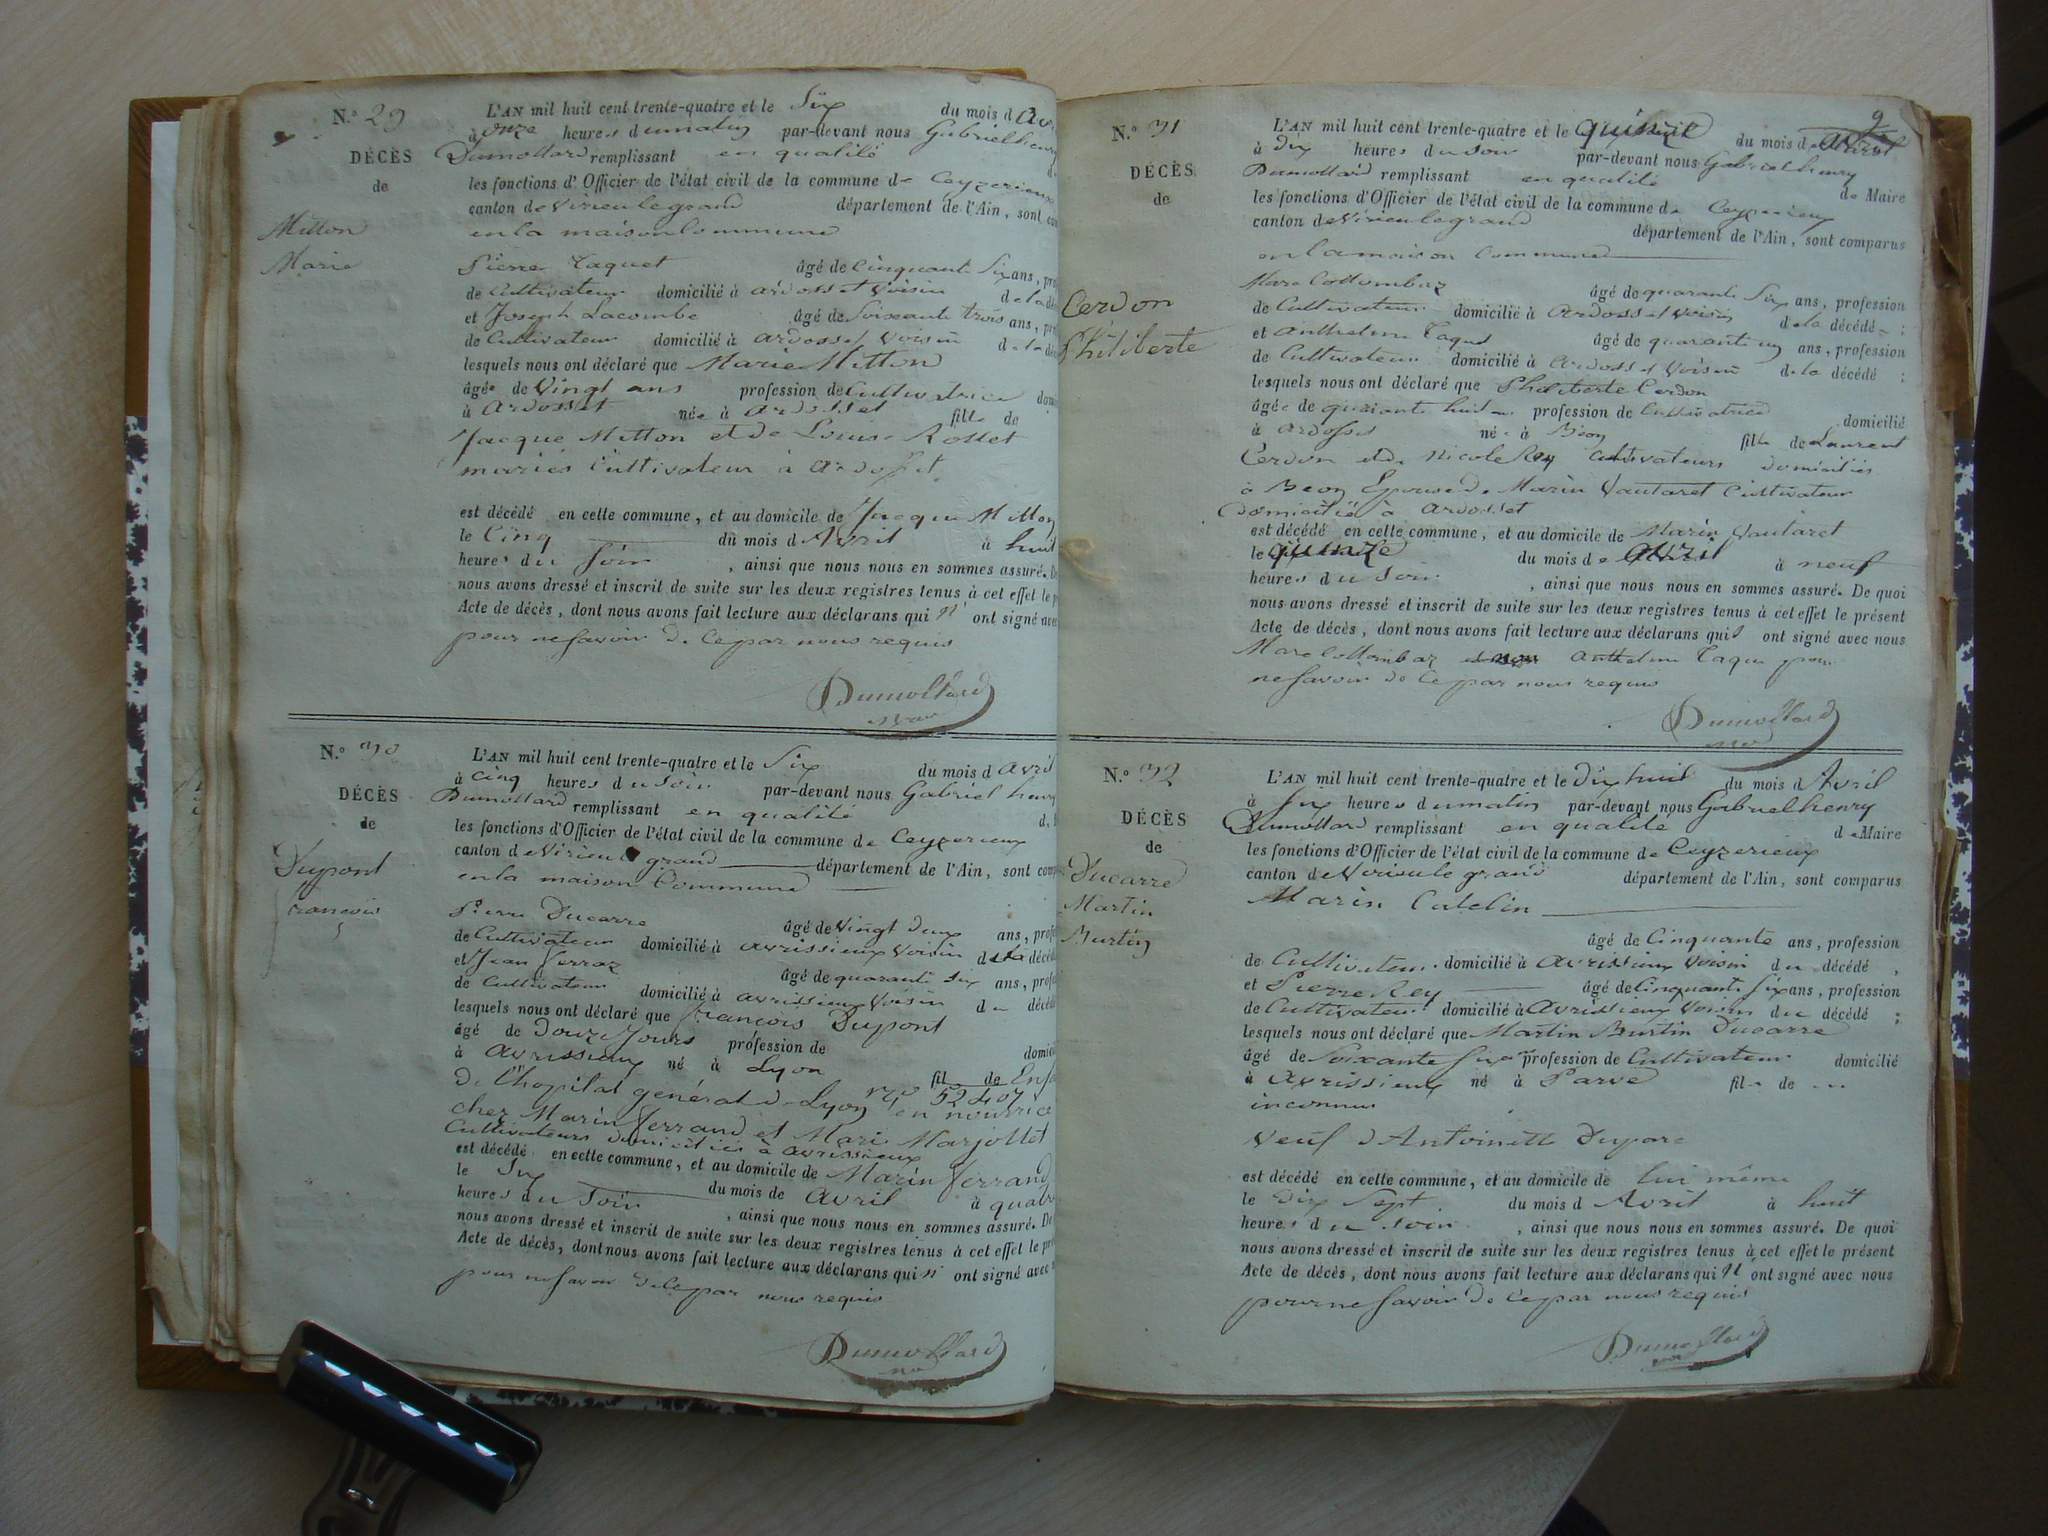 N.º 29
L'AN mil huit cent trente-quatre et le Six du mois d
à onze heures du matin par-devant nous Gabriel henry
DÉCÈS
Dumollard remplissant en qualité
de
les fonctions d'Officier de l'état civil de la commune de Ceyzerieux
canton de Virieu le grand département de l'Ain, sont
Mitton
en la maison Commune
Marie
Pierre Taquet âgé de Cinquante Six ans,
de Cultivateur domicilié à ardosset Voisin de la
et Joseph Lacombe âgé de Soixante trois ans,
de Cultivateur domicilié à ardosset Voisin de la
lesquels nous ont déclaré que Marie Mitton
âgée de Vingt ans profession de Cultivatrice
à Ardosset née à ardosset fille de
Jacque Mitton et de Louise Rosset
mariés Cultivateur à ardosset
est décédé en cette commune, et au domicile de Jacque Mitton
le Cinq du mois d'Avril à huit
heures du Soir, ainsi que nous nous en sommes assuré. De
nous avons dressé et inscrit de suite sur les deux registres tenus à cet effet le
Acte de décès, dont nous avons fait lecture aux déclarans qui n' ont signé avec
pour ne Savoir de Ce par nous requis
Dumollard
N.º 30
L'AN mil huit cent trente-quatre et le Six du mois d avril
à Cinq heures du Soir par-devant nous Gabriel henry
DÉCÈS
Dumollard remplissant en qualité
de
les fonctions d'Officier de l'état civil de la commune de Ceyzerieux
canton de Virieu le grand département de l'Ain, sont
Dupont
en la maison Commune
francois
Pierre Ducarre âgé de Vingt Deux ans,
de Cultivateur domicilié à avrissieux Voisin
et Jean ferraz âgé de quarante Six ans,
de Cultivateur domicilié à avrissieux Voisin du
lesquels nous ont déclaré que francois Dupont
âgé de Douze Jours profession de
à avrissieux né à Lyon fil de
De l'hopital general de Lyon n.º 52407 en nourrice
chez Marin ferrand et Marie Marjollet
Cultivateurs domiciliés à avrissieux
est décédé en cette commune, et au domicile de Marin ferrand
le Six du mois de avril à quatre
heures du Soir, ainsi que nous nous en sommes assuré. De
nous avons dressé et inscrit de suite sur les deux registres tenus à cet effet le
Acte de décès, dont nous avons fait lecture aux déclarans qui n' ont signé avec
pour ne Savoir de Ce par nous requis
Dumollard
9
N.º 31
L'AN mil huit cent trente-quatre et le du mois de avril
à Dix heures du Soir par-devant nous Gabriel henry
DÉCÈS
Dumollard remplissant en qualité de Maire
de
les fonctions d'Officier de l'état civil de la commune de Ceyzerieux
canton de Virieu le grand département de l'Ain, sont comparus
en la maison Commune
Cerdon
Philiberte
Marc Collombaz âgé de quarante Six ans, profession
de Cultivateur domicilié à ardosset Voisin de la décédée;
et anthelme Taquet âgé de quarante un ans, profession
de Cultivateur domicilié à ardosset Voisin de la décédé;
lesquels nous ont déclaré que Philiberte Cerdon
âgée de quarante huit an profession de Cultivatrice domicilié
à ardosset née à Béon fille de Laurent
Cerdon et de Nicole Rey Cultivateurs domiciliés
à Beon Epouse de Marin Vautaret Cultivateur
domicilié à ardosset
est décédé en cette commune, et au domicile de Marin Vautaret
le quinze du mois de avril à neuf
heures du Soir, ainsi que nous nous en sommes assuré. De quoi
nous avons dressé et inscrit de suite sur les deux registres tenus à cet effet le présent
Acte de décès, dont nous avons fait lecture aux déclarans qui ont signé avec nous
Marc Collombaz anthelme Taquet pour
ne Savoir de Ce par nous requis
Dumollard
N.º 32
L'AN mil huit cent trente-quatre et le Dix huit du mois d'Avril
à Six heures du matin par-devant nous Gabriel henry
DÉCÈS
Dumollard remplissant en qualité de Maire
de
les fonctions d'Officier de l'état civil de la commune de Ceyzerieux
canton de Virieu le grand département de l'Ain, sont comparus
Ducarre
Martin
Burtin
Marin Catelin
âgé de Cinquante ans, profession
de Cultivateur domicilié à avrissieux Voisin du décédé,
et Pierre Rey âgé de Cinquante Six ans, profession
de Cultivateur domicilié à avrissieux Voisin du décédé;
lesquels nous ont déclaré que Martin Burtin Ducarre
âgé de Soixante Six an profession de Cultivateur domicilié
à avrissieux né à Parve fils de
inconnus
Veuf d'Antoinette Dupare
est décédé en cette commune, et au domicile de lui même
le Dix Sept du mois d'Avril à huit
heures du Soir, ainsi que nous nous en sommes assuré. De quoi
nous avons dressé et inscrit de suite sur les deux registres tenus à cet effet le présent
Acte de décès, dont nous avons fait lecture aux déclarans qui n' ont signé avec nous
pour ne Savoir de Ce par nous requis
Dumollard